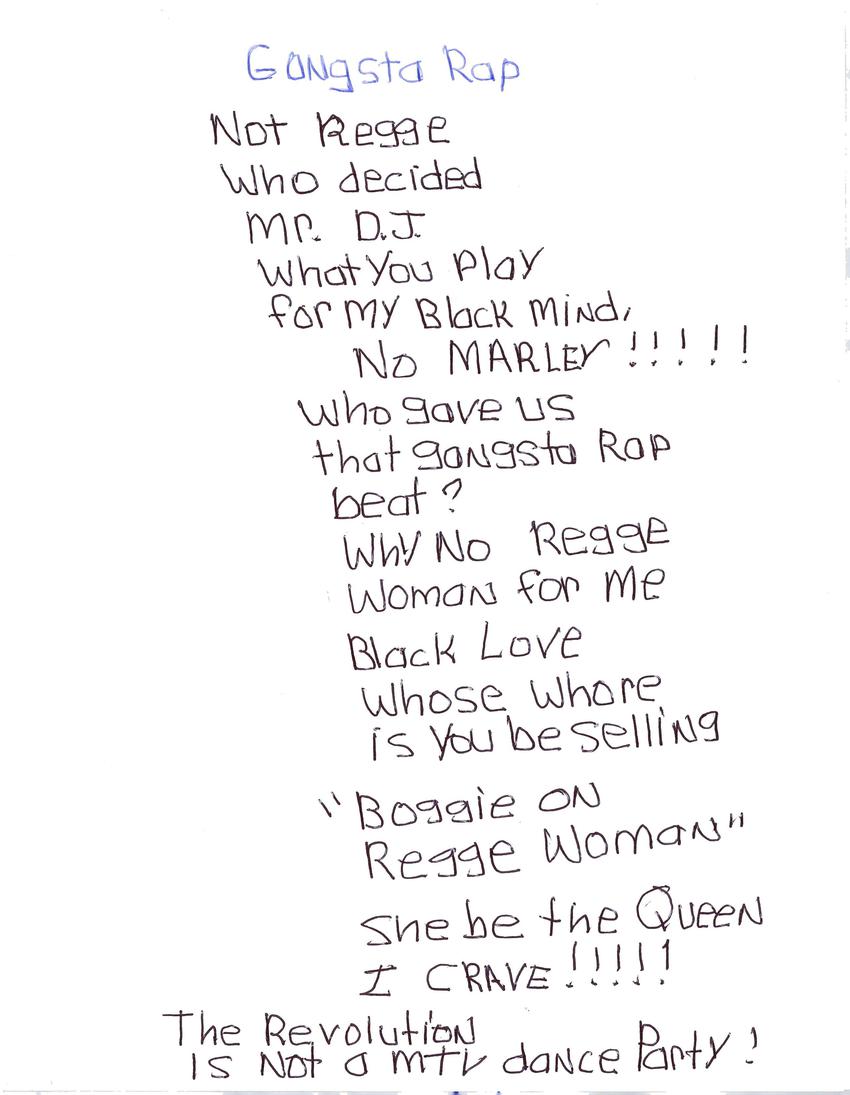 Gangsta Rap
Not Regge
Who decided
Mr. D.J.
What You Play
for My Black Mind,
No MARLEY !!!!!
Who gave us
that gangsta Rap
beat?
Why No Regge
Woman for Me
Black Love
Whose Whore
is You be selling
"Boggie ON
Regge Woman"
She be the Queen
I CRAVE !!!!!
The Revolution
is Not a MTV dance Party!